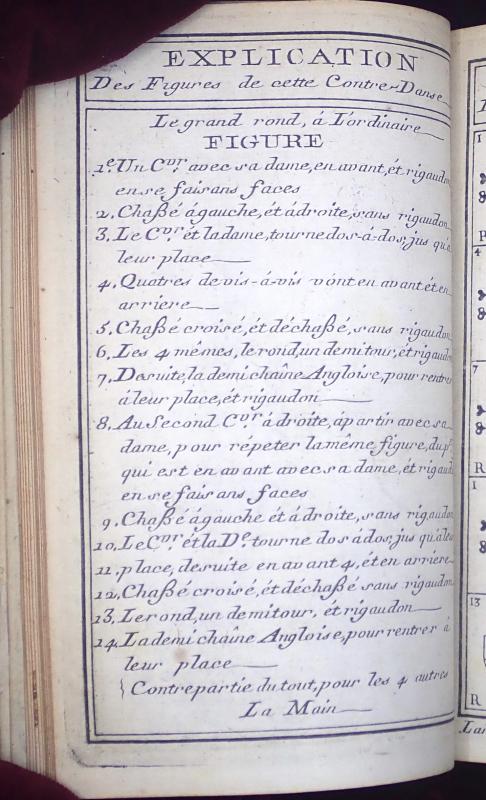 EXPLICATION
Des Figures de cette Contre-Danse
Le grand rond, á L'ordinaire
FIGURE
1.e Un Cvr. avec sa dame, en avant, ét rigaudon
en se faisans faces
2. Chaßé ágauche, ét ádroite, sans rigaudon
3. Le Cvr. ét la dame, tourne dos-á-dos, jus qu'a
leur place
4. Quatres de vis-á-vis vont en avant ét en
arriere
5. Chaßé croisé, ét déchaßé, sans rigaudon
6. Les 4 mêmes, le rond, un demi tour, ét rigaudon
7. Desuite, la demi chaîne Angloise, pour rentrer
á leur place, ét rigaudon
8. Au Second Cvr. á droite, ápartir avec sa
dame, pour répeter la même figure, du pr
qui est en avant avec sa dame, ét rigaud
en se faisans faces
9. Chaßé ágauche ét ádroite, sans rigaudon
10. Le Cvr. ét la De. tourne dos ádos, jus qu'áleur
11. place, desuite en avant 4, ét en arriere
12. Chaßé croisé, ét déchaßé sans rigaudon
13. Le rond, un demi tour, ét rigaudon
14. La demi chaîne Angloise, pour rentrer á
leur place
Contrepartie du tout, pour les 4 autres
La Main
1
R
4
7
R
1
13
R